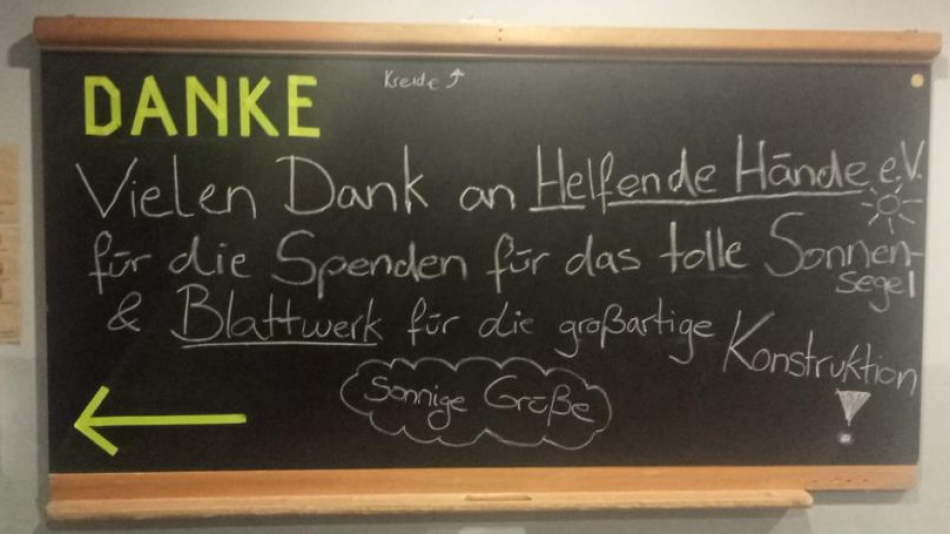 DANKE
Kreide
Vielen Dank an Helfende Hände e.V.
für die Spenden für das tolle Sonnen-
segel
& Blattwerk für die großartige Konstruktion
!
Sonnige Grüße